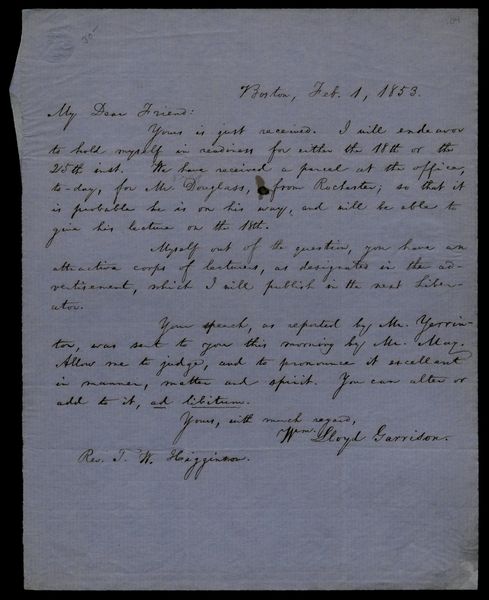 Boston, Feb. 1, 1853.
My Dear Friend:
Yours is just received. I will endeavor
to hold myself in readiness for either the 18th or the
25th inst. We have received a parcel at the office,
to-day, for Mr. Douglass, from Rochester; so that it
is probable he is on his way, and will be able to
give his lecture on the 18th.
Myself out of the question, you have an
attractive corps of lecturers, as designated in the ad-
vertisement, which I will publish in the next Liber-
ator.
Your speech, as reported by Mr. Yerrin-
ton, was sent to you this morning by Mr. May.
Allow me to judge, and to pronounce it excellent
in manner, matter and spirit. You can alter or
add to it, ad libitum.
Yours, with much regard,
Wm. Lloyd Garrison.
Rev. T. W. Higginson.